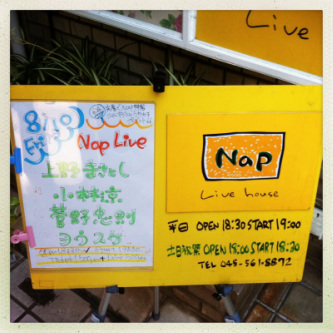 Live
8/18
Nap Live
上野まさとし
小林京
菅野忠則
ヨウスケ
Nap
Live house
平日 OPEN 18:30 START 19:00
土日祝祭 OPEN 18:00 START 18:30
TEL 045-561-8872